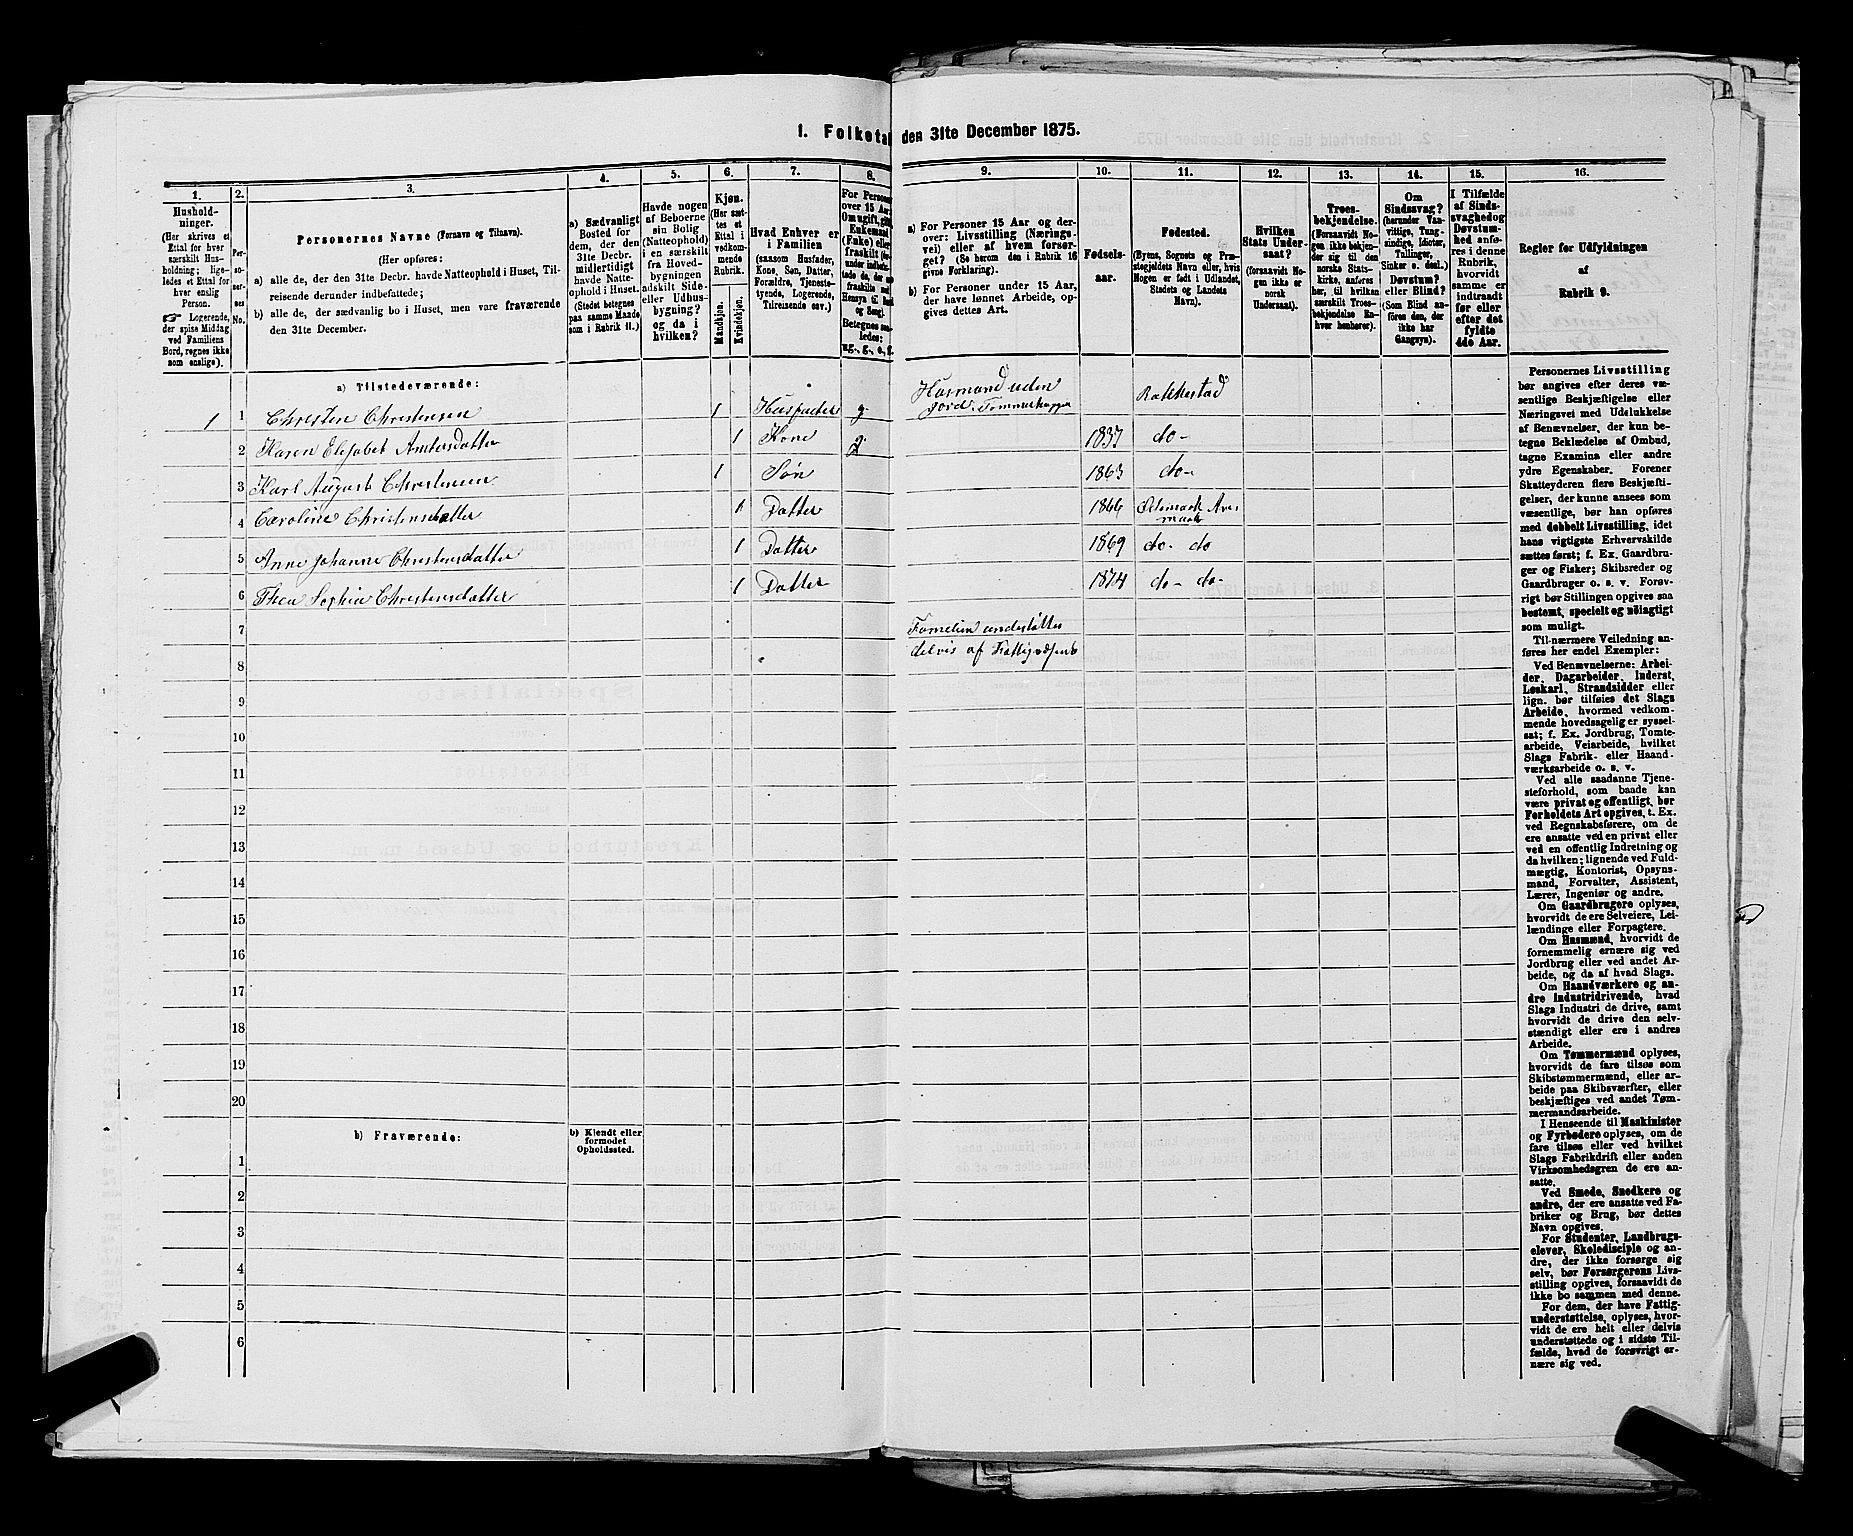 1. Folketal den 31te December 1875.
1.
Hushold-
ninger.
(Her skrives et
Ettal for hver
særskilt Hus-
holdning; lige-
ledes et Ettal
for hver
enslig
Person.
Logerende,
der spise Middag
ved Familiens
Bord, regnes ikke
som enslige).
2.
Per-
so-
ner-
nes
No.
3.
Personernes Navne (Fornavn og Tilnavn).
(Her opføres:
a) alle de, der den 31te Decbr. havde Natteophold i Huset, Til-
reisende derunder indbefattede;
b) alle de, der sædvanlig bo i Huset, men vare fraværende
den 31te December.
4.
a) Sædvanligt
Bosted for
dem, der den
31te Decbr.
midlertidigt
havde Natte-
ophold i Huset.
(Stedet betegnes
paa samme Maade
som i Rubrik 11.)
5.
Havde nogen
af Beboerne
sin Bolig
(Natteophold)
i en særskilt
fra Hoved-
bygningen
adskilt Side-
eller Udhus-
bygning?
og da i
hvilken?
6.
Kjøn.
(Her sæt-
tes et
Ettal i
vedkom-
mende
Rubrik.
Mandkjøn.
Kvindekjøn.
7.
Hvad Enhver er
i Familien
(saasom Husfader,
Kone, Søn, Datter,
Forældre, Tjeneste-
tyende, Logerende,
Tilreisende osv.)
8.
For Personer
over 15 Aar:
Betegnes saa-
ledes:
ug., g., e., f.
9.
a) For Personer 15 Aar og der-
over: Livsstilling (Nærings-
vei) eller af hvem forsør-
get? (Se herom den i Rubrik 16
givne Forklaring).
b) For Personer under 15 Aar,
der have lønnet Arbeide, op-
gives dettes Art.
10.
Fødsels-
aar.
11.
Fødested.
(Byens, Sognets og Præ-
stegjeldets Navn eller, hvis
Nogen er født i Udlandet,
Stedets og Landets
Navn).
12.
Hvilken
Stats Under-
saat?
(forsaavidt No-
gen ikke er
norsk
Undersaat).
13.
Troes-
bekjendelse.
(Forsaavidt No-
gen ikke bekjen-
der sig til den
norske Stats-
kirke, anføres
her, til hvilken
særskilt Troes-
bekjendelse En-
hver henhører).
14.
Om
Sindssvag?
(herunder Van-
vittige, Tung-
sindige, Idioter,
Tullinger,
Sinker o. desl.)
Døvstum?
eller Blind?
(Som Blind an-
føres den, der
ikke har
Gangsyn).
15.
I Tilfælde
af Sinds-
svaghed og
Døvstum-
hed anfø-
res i denne
Rubrik,
hvorvidt
samme er
indtraadt
før eller
efter det
fyldte
4de Aar.
16.
Regler for Udfyldningen
af
Rubrik 9.
a) Tilstedeværende:
1 1 Christen Christensen 1 Husfader g. Husmand uden Rakkestad
Jord.
2 Karen Elisabet Andersdatter 1 Kone g 1837 do-
3 Karl August Christensen 1 Søn 1863 do-
4 Caroline Christensdatter 1 Datter 1866 Ødemark Are-
mark
5 Anne Johanne Christensdatter 1 Datter 1869 do- do
6 Thea Sophie Christensdatter 1 Datter 1874 do- do-
7 Familien understøttes
8 delvis af Fattigvæsenet
9
10
11
12
13
14
15
16
17
18
19
20
b) Fraværende:
b) Kjendt eller
formodet
Opholdssted.
1
2
3
4
5
6
Personernes Livsstilling
bør angives efter deres væ-
sentlige Beskjæftigelse eller
Næringsvei med Udelukkelse
af Benævnelser, der kun be-
tegne Beklædelse af Ombud,
tagne Examina eller andre
ydre Egenskaber. Forener
Skatteyderen flere Beskjæfti-
gelser, der kunne ansees som
væsentlige, bør han opføres
med dobbelt Livsstilling, idet
hans vigtigste Erhvervskilde
sættes først; f. Ex. Gaardbru-
ger og Fisker; Skibsreder og
Gaardbruger o. s. v. Forøv-
rigt bør Stillingen opgives saa
bestemt, specielt og nøiagtigt
som muligt.
Til nærmere Veiledning an-
føres her endel Exempler:
Ved Benævnelserne: Arbei-
der, Dagarbeider, Inderst,
Løskarl, Strandsidder eller
lign. bør tilføies det Slags
Arbeide, hvormed vedkom-
mende hovedsagelig er syssel-
sat; f. Ex. Jordbrug, Tomte-
arbeide, Veiarbeide, hvilket
Slags Fabrik- eller Haand-
værksarbeide o. s. v.
Ved alle saadanne Tjene-
steforhold, som baade kan
være privat og offentligt, bør
Forholdets Art opgives, t. Ex.
ved Regnskabsførere, om de
ere ansatte ved en privat eller
ved en offentlig Indretning og
da hvilken; lignende ved Fuld-
mægtig, Kontorist, Opsyns-
mand, Forvalter, Assistent,
Lærer, Ingeniør og andre.
Om Gaardbrugere oplyses,
hvorvidt de ere Selveiere, Lei-
lændinge eller Forpagtere.
Om Husmænd, hvorvidt de
fornemmelig ernære sig ved
Jordbrug eller ved andet Ar-
beide, og da af hvad Slags.
Om Haandværkere og an-
dre Industridrivende, hvad
Slags Industri de drive, samt
hvorvidt de drive den selv-
stændigt eller ere i andres
Arbeide.
Om Tømmermænd oplyses,
hvorvidt de fare tilsøs som
Skibstømmermænd, eller ar-
beide paa Skibsværfter, eller
beskjæftiges ved andet Tøm-
mermandsarbeide.
I Henseende til Maskinister
og Fyrbødere oplyses, om de
fare tilsøs eller ved hvilket
Slags Fabrikdrift eller anden
Virksomhedsgren de ere an-
satte.
Ved Smede, Snedkere og
andre, der ere ansatte ved Fa-
briker og Brug, bør dettes
Navn opgives.
For Studenter, Landbrugs-
elever, Skoledisciple og an-
dre, der ikke forsørge sig
selv, bør Forsørgerens Livs-
stilling opgives, forsaavidt de
ikke bo sammen med denne.
For dem, der have Fattig-
understøttelse, oplyses, hvor-
vidt de ere helt eller delvis
understøttede og i sidste Til-
fælde, hvad de forøvrigt er-
nære sig ved.